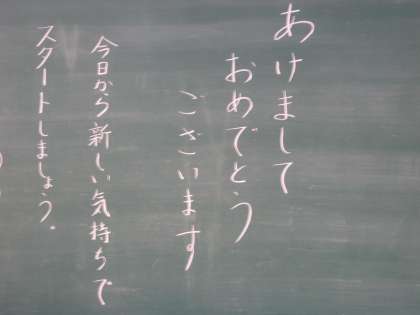 あけまして
おめでとう
ございます
今日から新しい気持ちで
スタートしましょう。